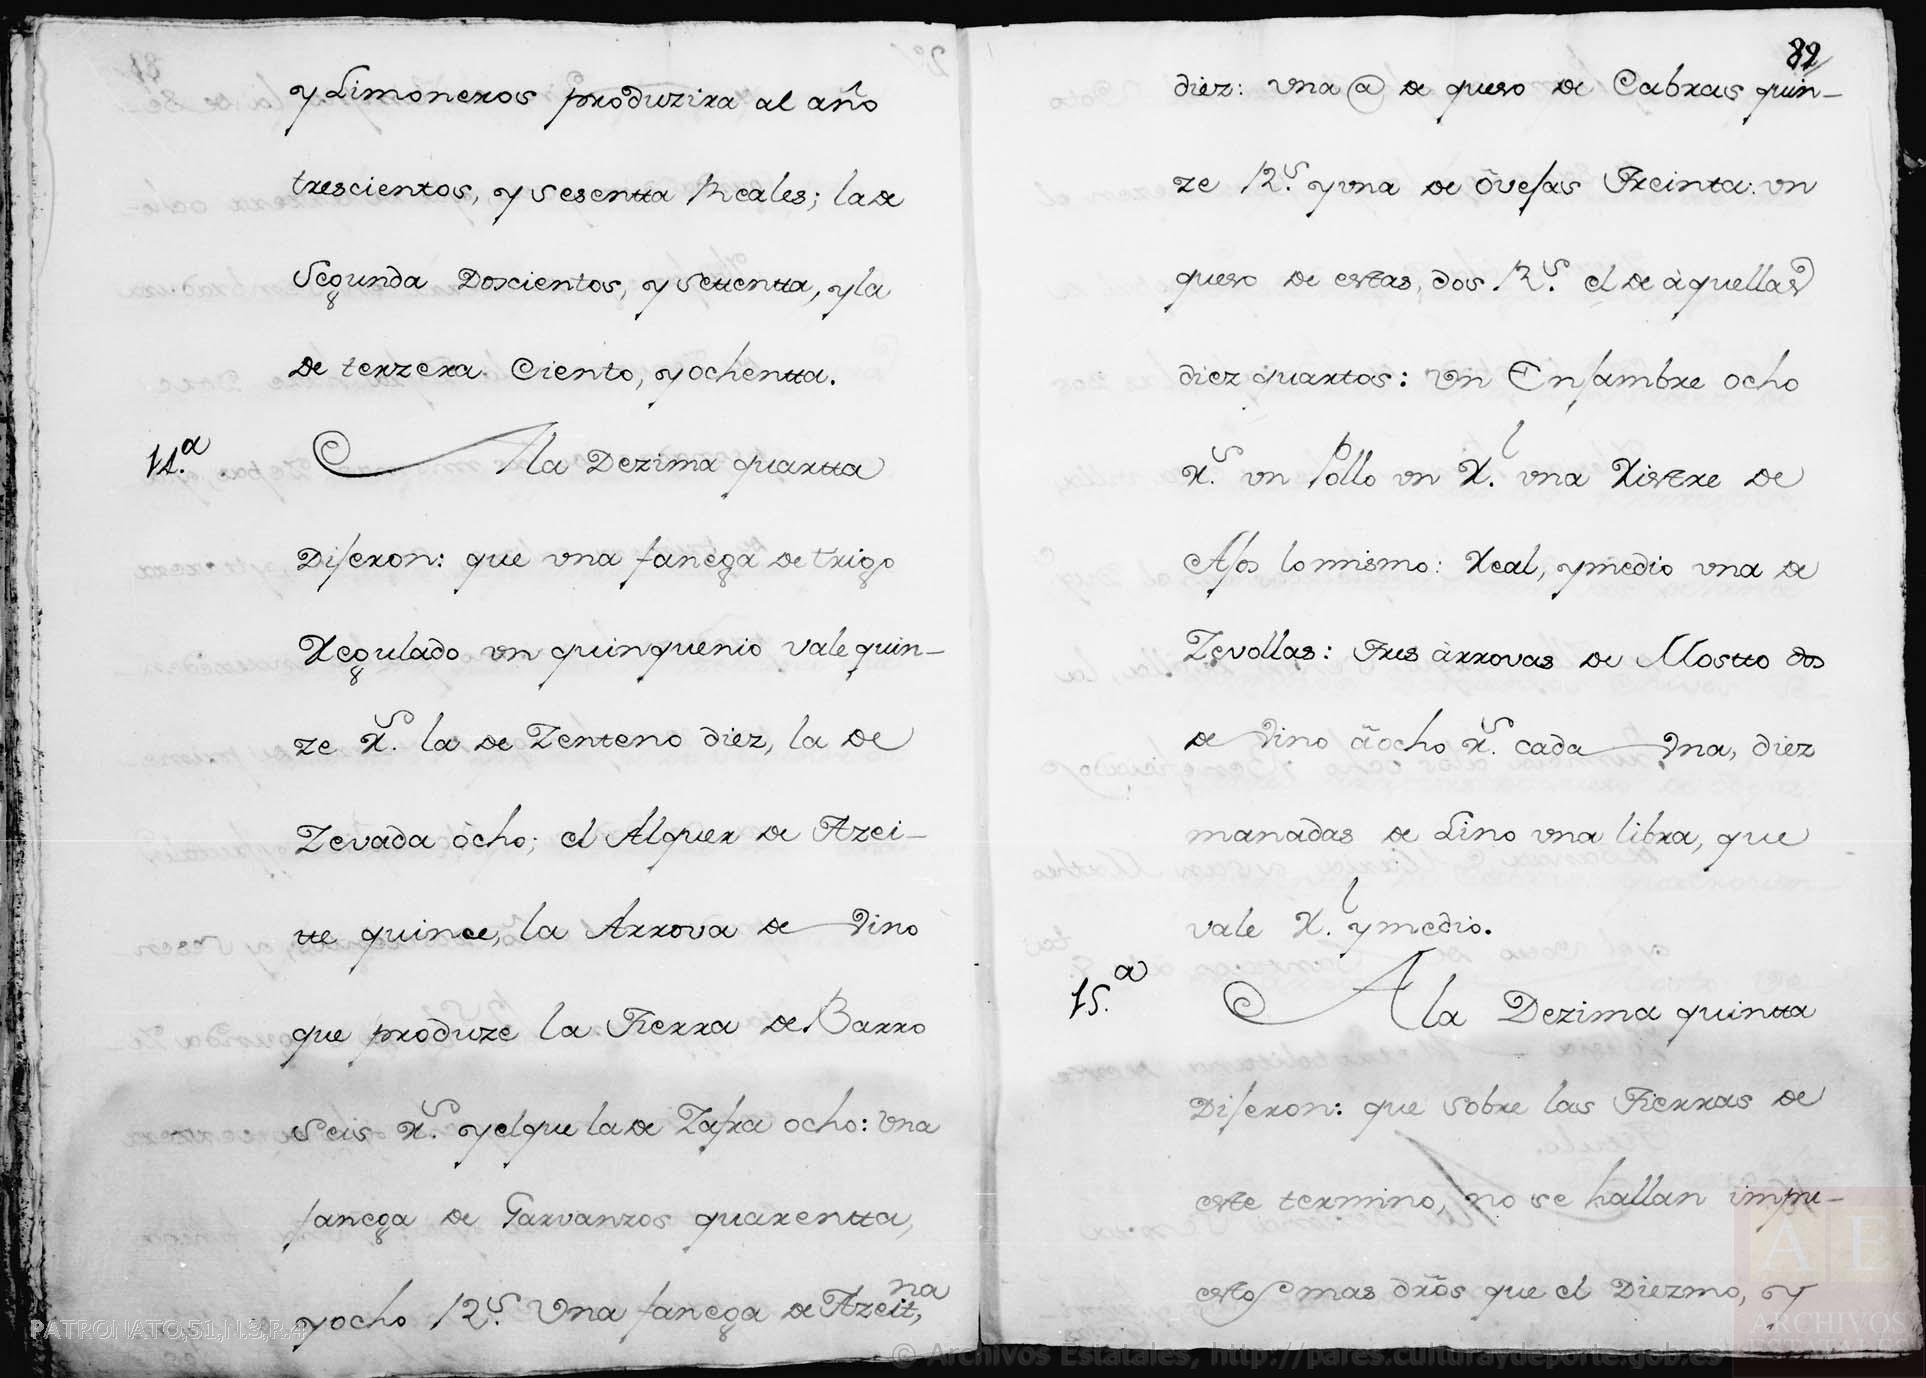 y Limoneros produzira al año
trescientos, y sesentta Reales; la de
Segunda Doscientos, y settentta, y la
de terzera Ciento, y ochentta.
14.ª A la Dezima quartta
Dijeron: que vna fanega de trigo
Regulado vn quinquenio vale quin-
ze R.ˢ la de Zenteno diez, la de
Zevada ocho; el Alquer de Azei-
tte quince, la Arrova de Vino
que produze la Tierra de Barro
seis R.ˢ y el que la de Zafra ocho: Vna
fanega de Garvanzos quarentta,
y ocho R.ˢ Vna fanega de Azeit,ⁿᵃ
82
diez: vna @ de queso de Cabras quin-
ze R.ˢ y vna de óvejas Treinta: vn
queso de estas, dos R.ˢ el de àquellas
diez quartos: Vn Enjambre ocho
R.ˢ vn Pollo vn R.ˡ vna Ristre de
Ajos lo mismo: Real, y medio vna de
Zevollas: Tres àrrovas de Mostto dos
de Vino ã ocho R.ˢ cada Vna, diez
manadas de Lino vna libra, que
vale R.ˡ y medio.
15.ª A la Dezima quintta
Dijeron: que sobre las Tierras de
este termino, no se hallan impu-
esto mas drõs que el Diezmo, y
PATRONATO,51,N.3,R.4
© Archivos Estatales, http://pares.culturaydeporte.gob.es
AE
ARCHIVOS
ESTATALES